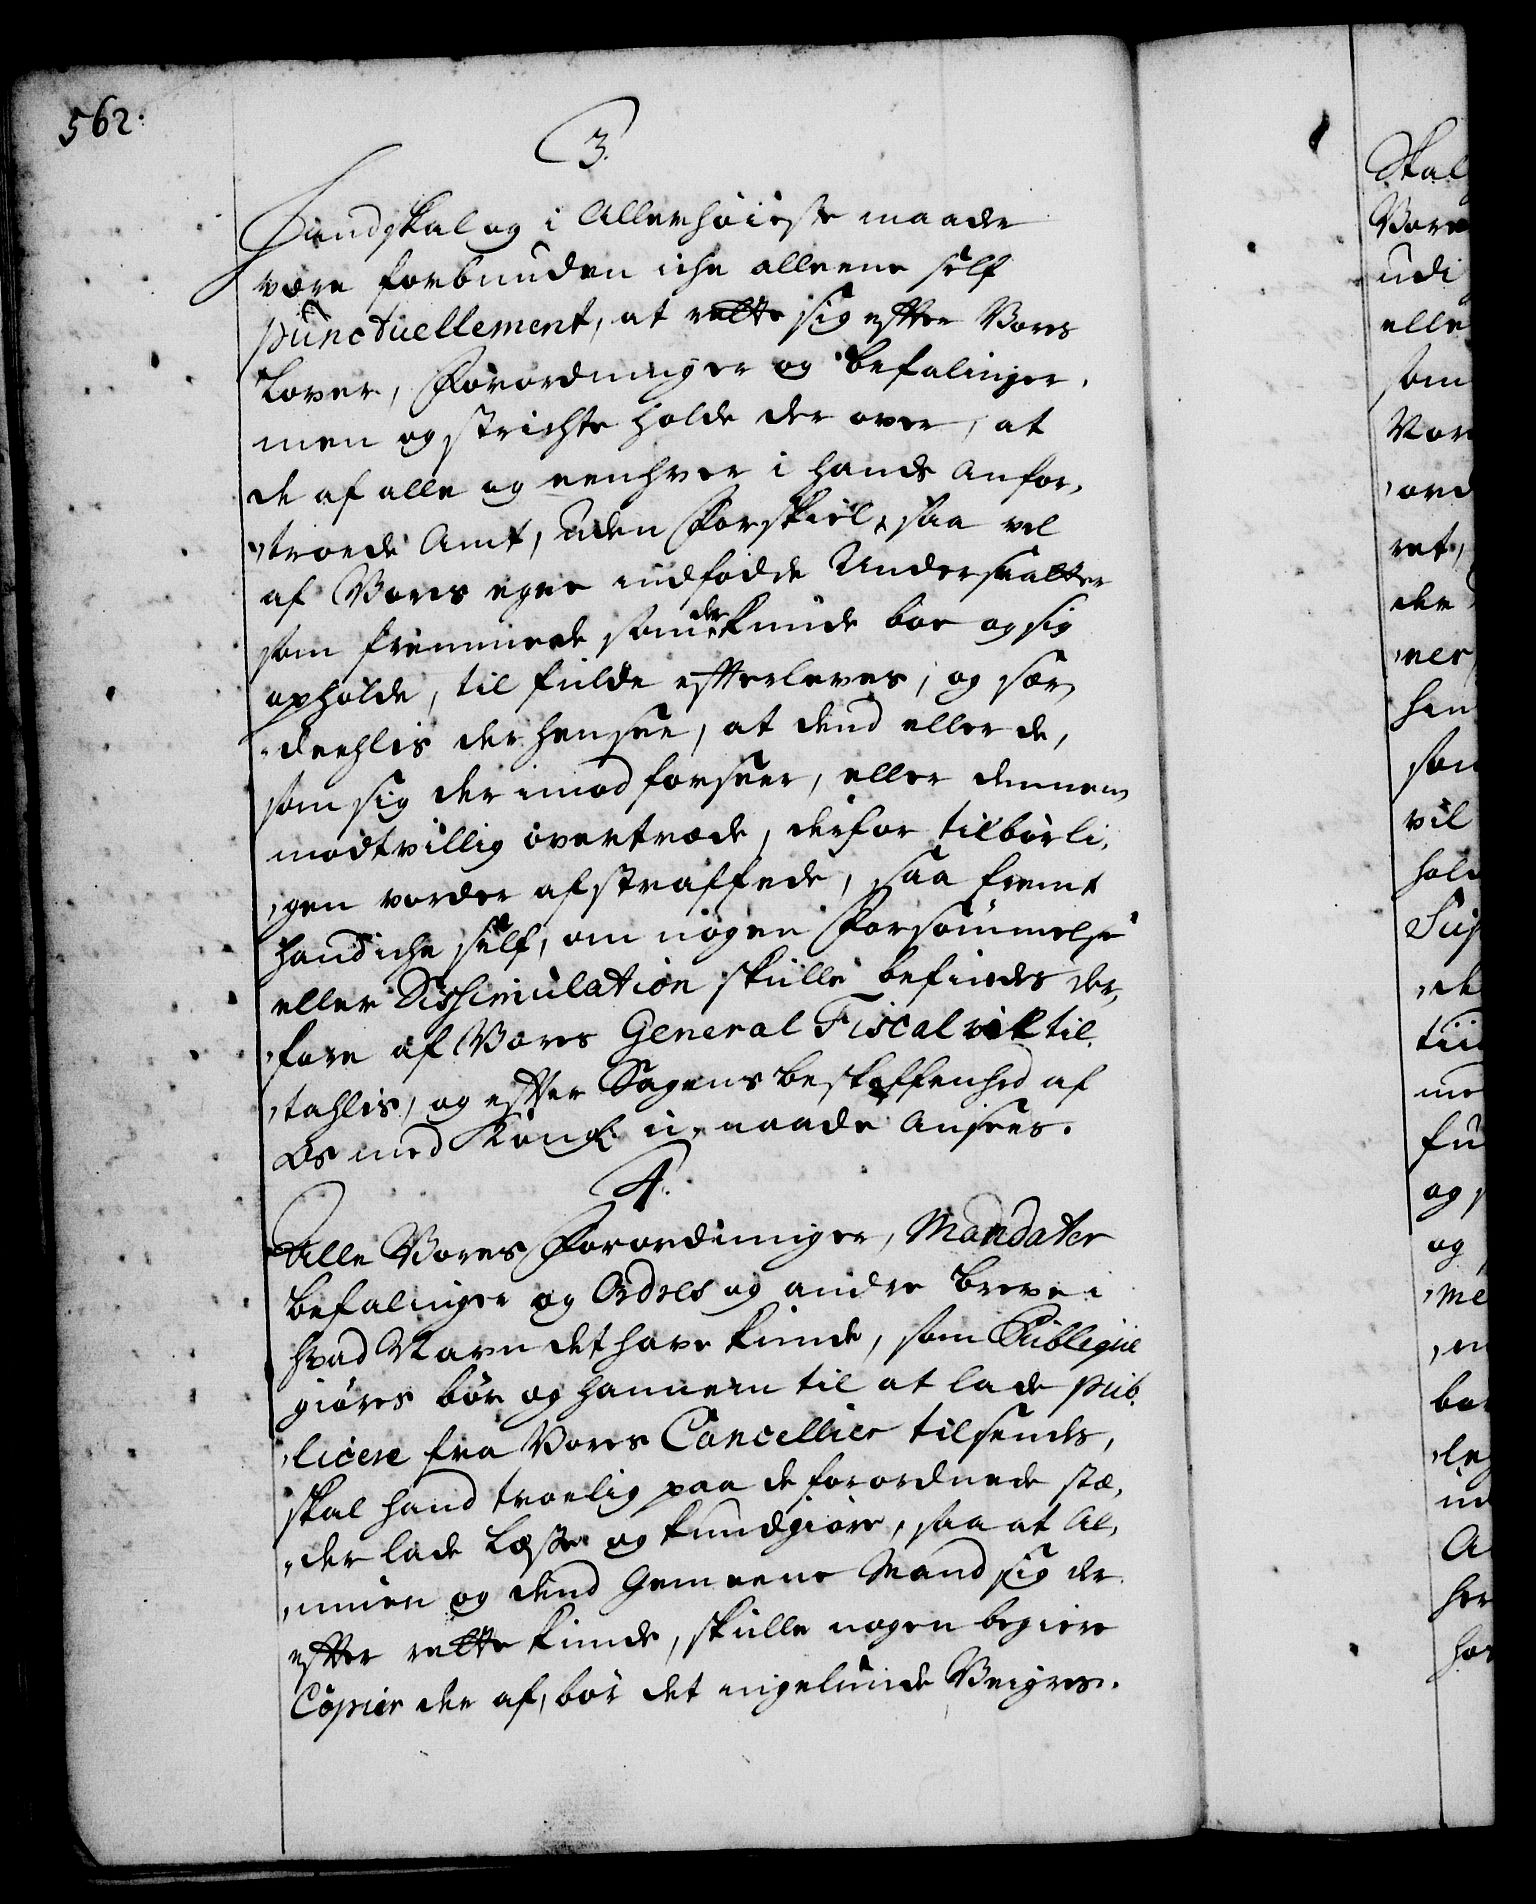 562.
3.
Hand skal og i Allerhøieste maade
være forbunden iche alleene self
punctuellement, at rette sig efter Vores
Lover, Forordninger og befalinger,
men og strichte holde der over, at
de af alle og eenhver i hands Anfor-
„troede Amt, uden Forskiel, saa vel
af Vores egne indfødde Undersaatter
som fremmede som der kunde boe og sig
opholde, til fulde efterleves, og sær-
„deehlis der hensee, at dend eller de,
som sig der imod forseer, eller dennem
modtvillig overtræde, derfor tilbørli-
„gen vorder afstraffede, saa fremt
hand iche self, om nogen Forsømmelse
eller Dissimulation skulle befindes der-
„fore af Vores General Fiscal vil til-
„tahles, og efter Sagens beskaffenhed af
Os med Kongl. unaade Ansees.
4.
Alle Vores Forordninger, Mandater
befalinger og Ordres og andre breve i
hvad Navn det have kunde, som Publique
giøres bør og hannem til at lade pub-
„licere fra Vores Cancellier tilsendes,
skal hand troelig paa de forordnede stæ-
„der lade Læse og kundgiøre, saa at Al-
„muen og dend Gemeene Mand sig der
efter rette kunde, skulle nogen begiere
Copier der af, bør det ingelunde Veigres.
Skal
Vore
udi
elle
som
Vor
ret,
der
hen
som
vil
hold
tiid
me
fu
og
og
me
bør
leg
A
her